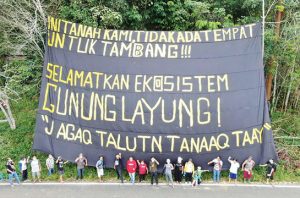 INI TANAH KAMI, TIDAK ADA TEMPAT
UNTUK TAMBANG!!!
SELAMATKAN EKOSISTEM
GUNUNG LAYUNG!
"JAGAQ TALUTN TANAAQ TAAY"